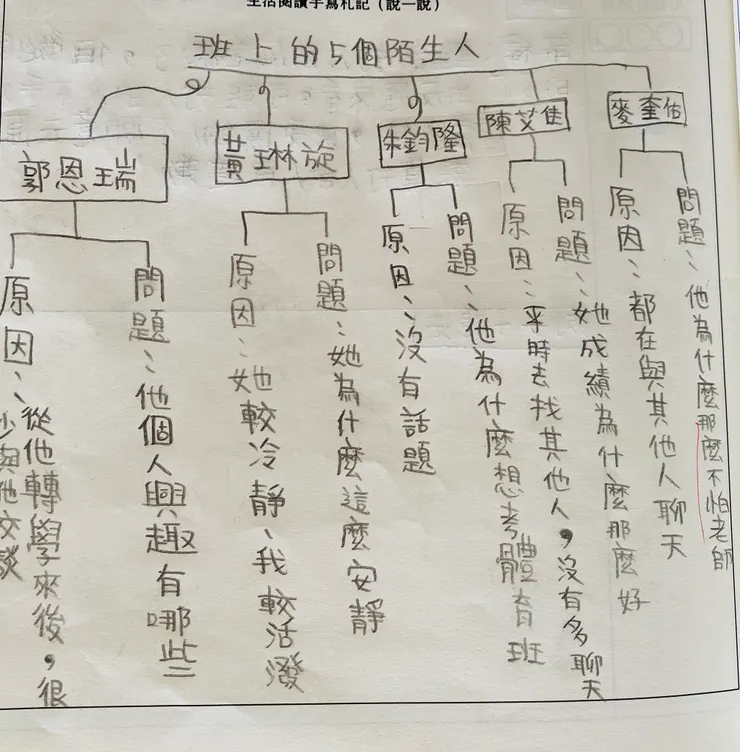 生活閱讀手寫札記（說一說）
班上的5個陌生人
麥奎佑
問題：他為什麼那麼不怕老師
原因：都在與其他人聊天
陳艾隹
問題：她成績為什麼那麼好
原因：平時去找其他人，沒有多聊天
朱鈞隆
問題：他為什麼想考體育班
原因：沒有話題
黃琳旋
問題：她為什麼這麼安靜
原因：她較冷靜、我較活潑
郭恩瑞
問題：他個人興趣有哪些
原因：從他轉學來後，很
少與他交談